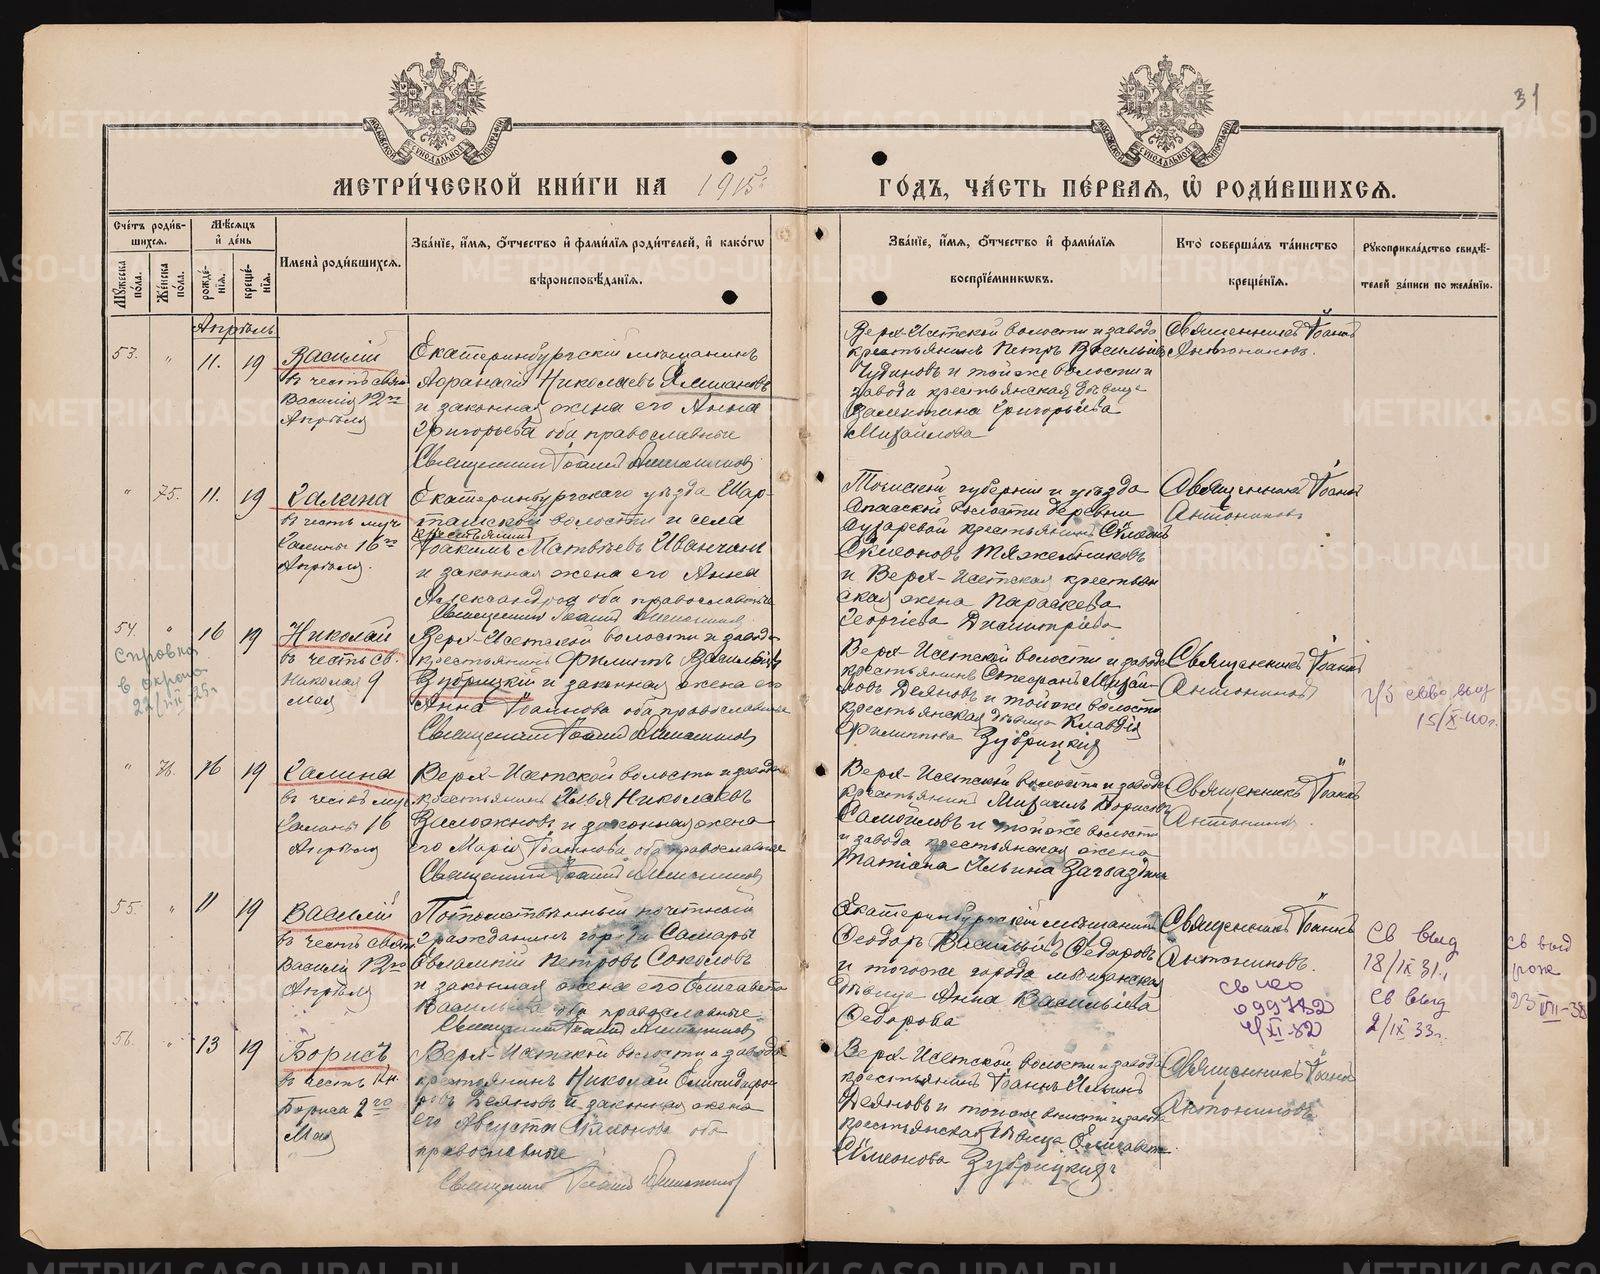 31
МЕТРИ́ЧЕСКОЙ КНИ́ГИ НА 1915 г.
ГО́ДЪ, ЧА́СТЬ ПЕ́РВАЯ, Ѡ҆ РОДИ́ВШИХСЯ.
Сче́тъ роди́в-
шихся.
Му́жеска по́ла.
Же́нска по́ла.
Мѣ́сяцъ
и҆ де́нь
рожде́-
нїя.
креще́-
нїя.
Имена̀ роди́вшихся.
Зва́нїе, и҆́мя, о҆́тчество и҆ фами́лїя роди́телей, и҆ како́гѡ
вѣроисповѣ́данїя.
Зва́нїе, и҆́мя, о҆́тчество и҆ фами́лїя
воспрїе́мникѡвъ.
Кто̀ соверша́лъ та́инство
креще́нїя.
Рукоприкла́дство свидѣ́-
телей за́писи по жела́нїю.
Апрѣль
53. " 11. 19
Василій
въ честь свящ
Василія 12го
Апрѣля
Екатеринбургскій мѣщанинъ
Аѳанасій Николаевъ
и законная жена его Анна
Григорьева оба православные
Священникъ Іоаннъ Антониновъ
Верх-Исетской волости и завода
крестьянинъ Петръ Васильевъ
Чудиновъ и той же волости и
завода крестьянская дѣвица
Валентина Григорьева
Михайлова
Священникъ Іоаннъ
Антониновъ.
" 75. 11. 19
Галина
въ честь муч
Галины 16го
Апрѣля.
Екатеринбургскаго уѣзда Шар-
ташской волости и села
крестьянинъ
Іоакимъ Матвѣевъ Иванчинъ
и законная жена его Анна
Александрова оба православные
Священникъ Іоаннъ Антониновъ
Томской губерніи и уѣзда
Спасской волости деревни
крестьянинъ Симеонъ
Симеоновъ Тяжельниковъ
и Верх-Исетская крестьян
ская жена Параскева
Георгіева Димитріева
Священникъ Іоаннъ
Антониновъ
54. " 16 19
Справка
22/XII 25г
Николай
въ честь св.
Николая 9
мая
Верх-Исетской волости и завода
крестьянинъ Филиппъ Васильевъ
Зубрицкій и законная жена его
Анна Іоаннова оба православные
Священникъ Іоаннъ Антониновъ
Верх-Исетской волости и завода
крестьянинъ Стефанъ Михай-
ловъ Деяновъ и той же волости
крестьянская дѣвица Клавдія
Филиппова Зубрицкая
Священникъ Іоаннъ
Антониновъ
15/X-40г.
" 76. 16 19
Галина
въ честь муч
Галины 16
Апрѣля
Верх-Исетской волости и завода
крестьянинъ Илья Николаевъ
Заложновъ и законная жена
его Марія Іоаннова оба православные
Священникъ Іоаннъ Антониновъ
Верх-Исетской волости и завода
крестьянинъ Михаилъ Борисовъ
Самойловъ и той же волости
и завода крестьянская жена
Татіана Ильина
Священникъ Іоаннъ
Антониновъ.
55. " 11 19
Василій
въ честь свящ
Василія 12го
Апрѣля
Потомственный почетный
гражданинъ города Самары
Евлампій Петровъ Соколовъ
и законная жена его Елисавета
Васильева оба православные
Священникъ Іоаннъ Антониновъ
Екатеринбургскій мѣщанинъ
Ѳеодоръ Васильевъ Ѳедоровъ
и того же города мѣщанская
дѣвица Анна Васильева
Ѳедорова
Священникъ Іоаннъ
Антониновъ.
Св ю
099782
4/XI-82
Св выд
18/IX 31г
Св выд
2/IX 33г.
св выд
рож
23/VII-38
56. " 13 19
Борисъ
въ честь Кн.
Бориса 2го
Мая
Верх-Исетской волости и завода
крестьянинъ Николай Александ
ровъ Деяновъ и законная жена
его Августа Симеонова оба
православные
Священникъ Іоаннъ Антониновъ
Верх-Исетской волости и завода
крестьянинъ Іоаннъ Ильинъ
Деяновъ и той же волости и завода
крестьянская дѣвица Елисавета
Симеонова Зубрицкая
Священникъ Іоаннъ
Антониновъ
METRIKI.GASO-URAL.RU